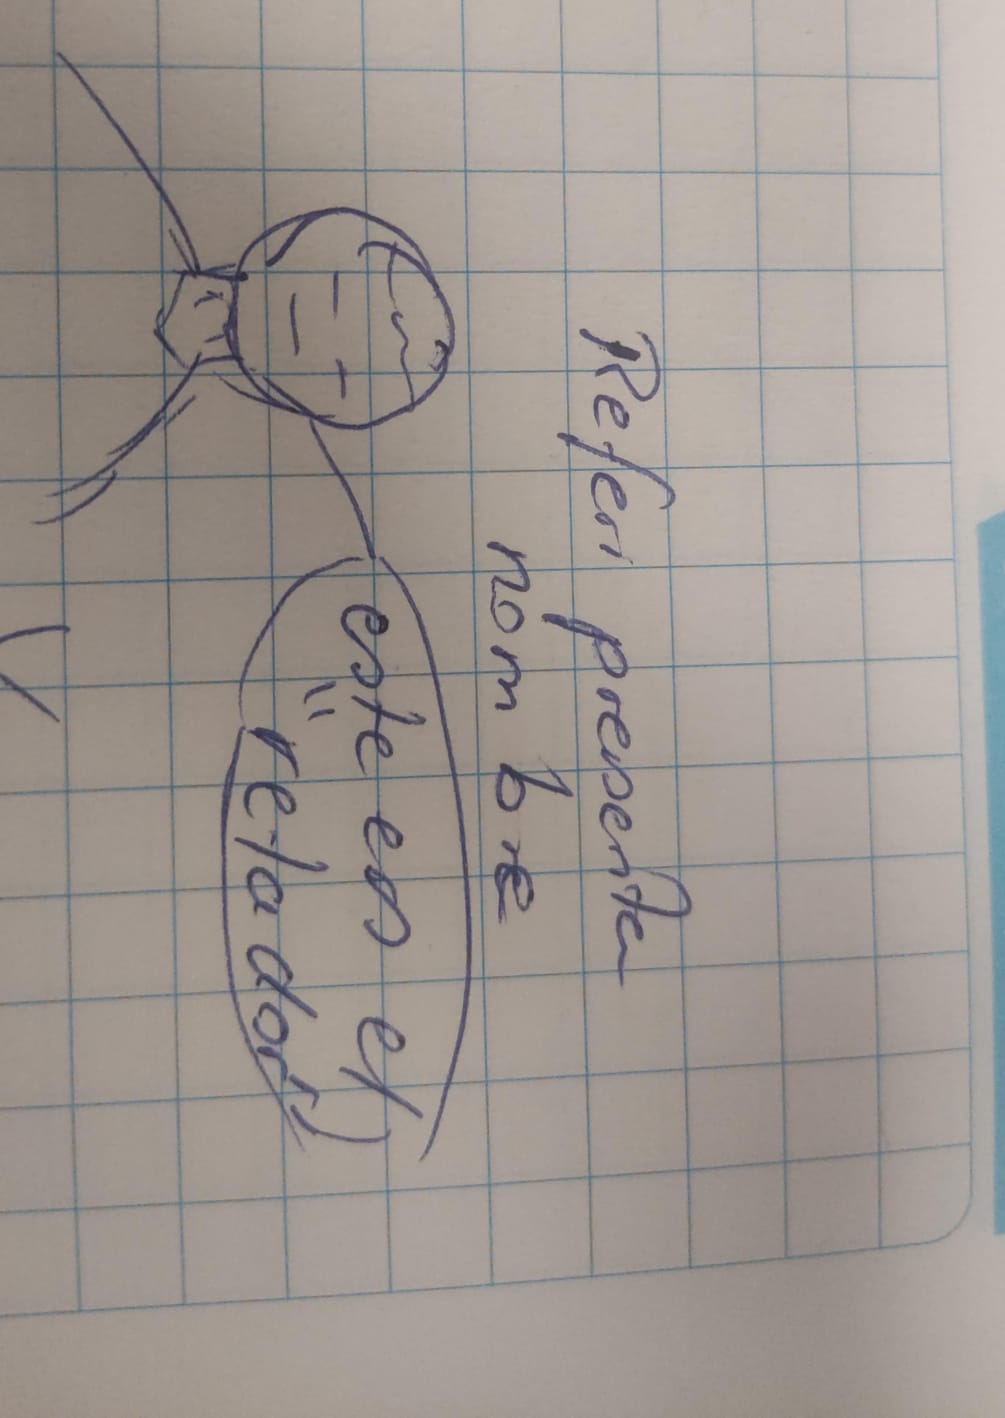 Referi presenta
nombre
este es el
"retador"